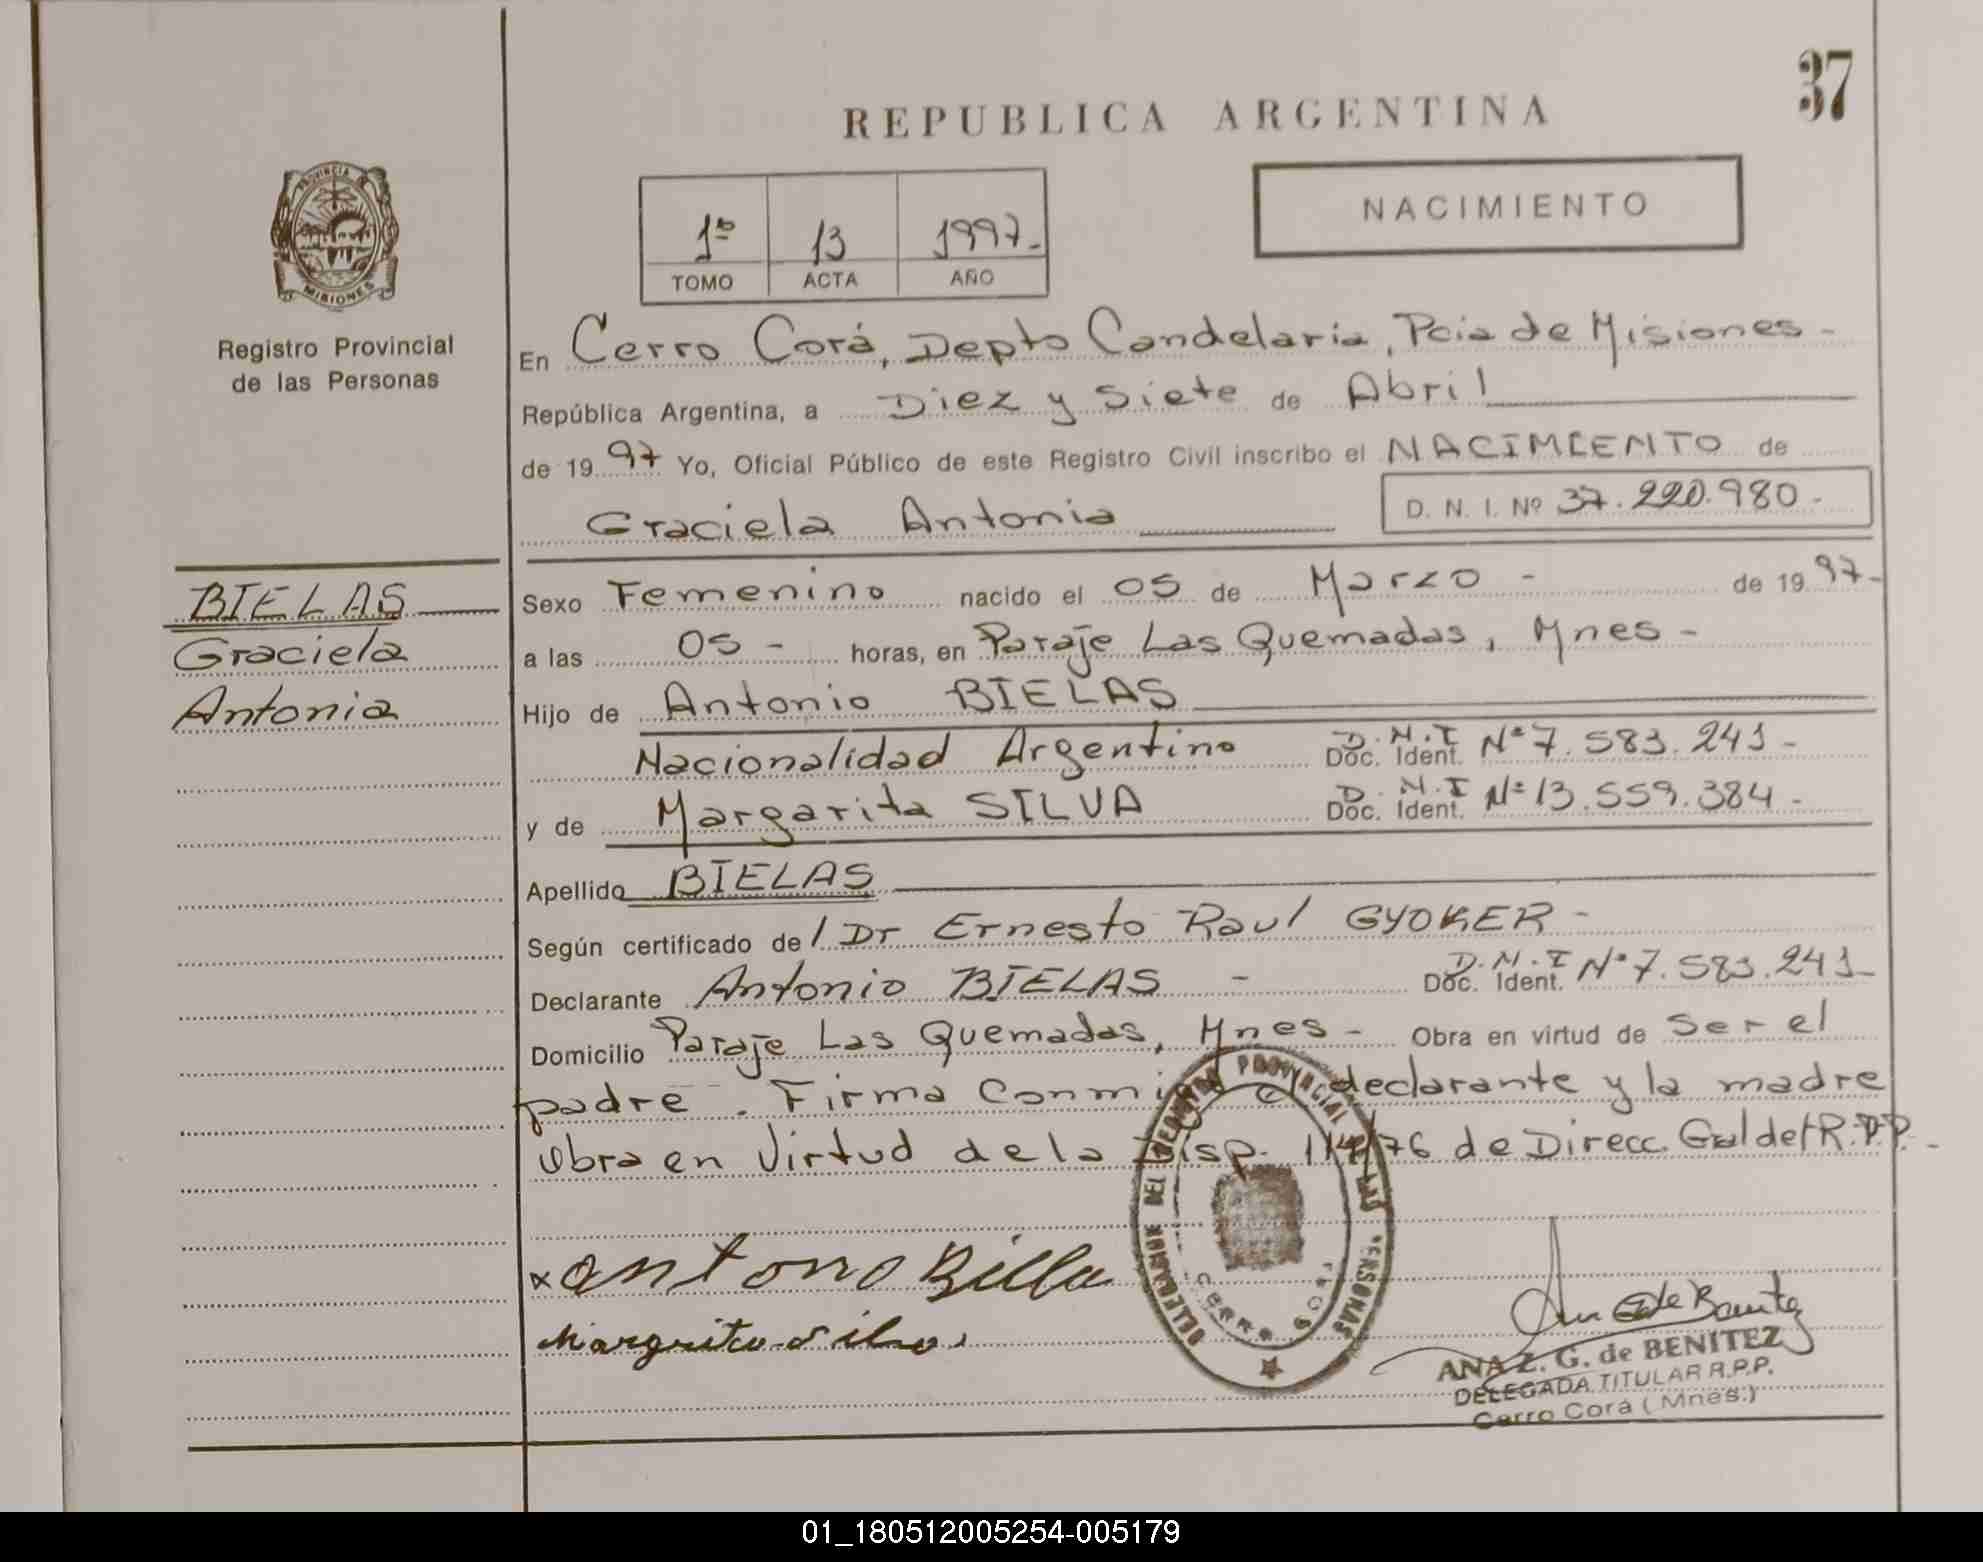 37
REPUBLICA ARGENTINA
PROVINCIA
MISIONES
Registro Provincial
de las Personas
1º 13 1997.-
TOMO ACTA AÑO
NACIMIENTO
En Cerro Corá, Depto Candelaria, Pcia de Misiones -
República Argentina, a Diez y Siete de Abril
de 1997 Yo, Oficial Público de este Registro Civil inscribo el NACIMIENTO de
Graciela Antonia D. N. I. Nº 37.220.980.-
BIELAS
Graciela
Antonia
Sexo Femenino nacido el 05 de Marzo - de 1997-
a las 05 - horas, en Paraje Las Quemadas, Mnes -
Hijo de Antonio BIELAS
Nacionalidad Argentino Doc. Ident. D.N.I Nº 7.583.241-
y de Margarita SILVA Doc. Ident. D.N.I Nº 13.559.384-
Apellido BIELAS
Según certificado de / Dr Ernesto Raul GYOKER -
Declarante Antonio BIELAS - Doc. Ident. D.N.I Nº 7.583.241-
Domicilio Paraje Las Quemadas, Mnes - Obra en virtud de Ser el
padre . Firma Conmigo declarante y la madre
Obra en Virtud de la Disp. 114/76 de Direcc. Gral del R.P.P.-
DELEGADA DEL REGISTRO PROVINCIAL DE LAS PERSONAS
CERRO CORA
x Antonio Biella
Margrita Silva
Ana G de Benitez
ANA Z. G. de BENITEZ
DELEGADA TITULAR R.P.P.
Cerro Corá (Mnes.)
01_180512005254-005179